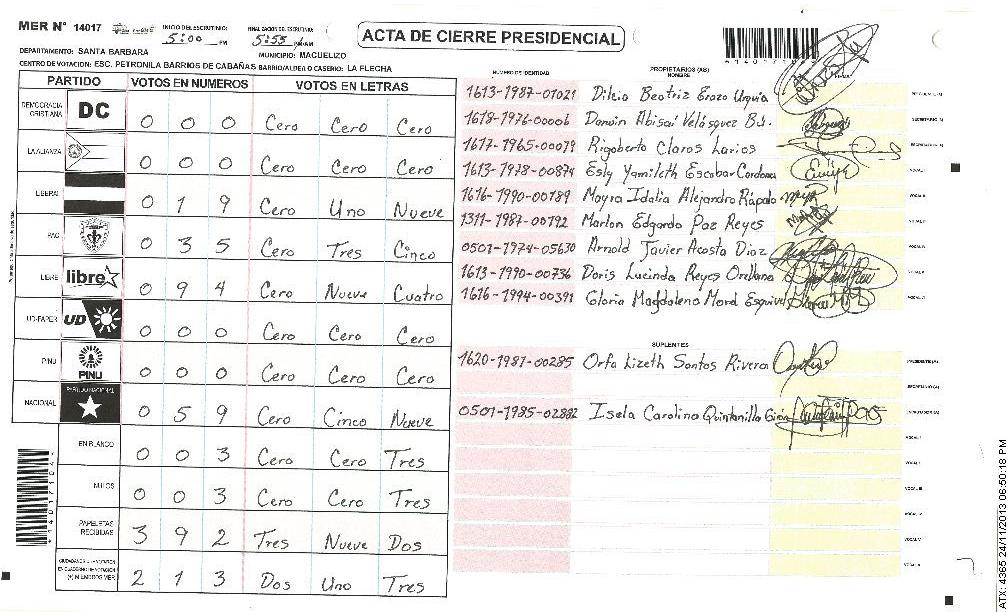 MER N° 14017
INICIO DEL ESCRUTINIO:
5:00 PM
FINALIZACION DEL ESCRUTINIO:
5:55 PM/AM
ACTA DE CIERRE PRESIDENCIAL
DEPARTAMENTO: SANTA BARBARA
MUNICIPIO: MACUELIZO
CENTRO DE VOTACION: ESC. PETRONILA BARRIOS DE CABAÑAS BARRIO/ALDEA O CASERIO: LA FLECHA
PARTIDO VOTOS EN NUMEROS VOTOS EN LETRAS
DEMOCRACIA CRISTIANA DC 0 0 0 Cero Cero Cero
LA ALIANZA 0 0 0 Cero Cero Cero
LIBERAL 0 1 9 Cero Uno Nueve
PAC 0 3 5 Cero Tres Cinco
LIBRE libre 0 9 4 Cero Nueve Cuatro
UD-FAPER UD 0 0 0 Cero Cero Cero
PINU PINU 0 0 0 Cero Cero Cero
NACIONAL PARTIDO NACIONAL 0 5 9 Cero Cinco Nueve
EN BLANCO 0 0 3 Cero Cero Tres
NULOS 0 0 3 Cero Cero Tres
PAPELETAS RECIBIDAS 3 9 2 Tres Nueve Dos
(+) MIEMBROS MER 2 1 3 Dos Uno Tres
NUMERO DE IDENTIDAD
PROPIETARIOS (AS)
NOMBRE
1613-1987-01021 Dilcia Beatriz Erazo Urquia PRESIDENTE (A)
1618-1976-00006 Darwin Abisai Velásquez SECRETARIO (A)
1617-1965-00079 Rigoberto Claros Larios ESCRUTADOR (A)
1613-1978-00874 Esly Yamileth Escobar Cardona VOCAL I
1616-1990-00789 Mayra Idalia Alejandro Rápalo VOCAL II
1311-1987-00792 Marlon Edgardo Paz Reyes VOCAL III
0501-1974-05630 Arnold Javier Acosta Diaz VOCAL IV
1613-1990-00736 Doris Lucinda Reyes Orellana VOCAL V
1616-1994-00391 Gloria Magdaleno Mord Esquivel VOCAL VI
SUPLENTES
1620-1987-00285 Orfa Lizeth Santos Rivera PRESIDENTE (A)
SECRETARIO (A)
0501-1985-02882 Isela Carolina Quintanilla Girón ESCRUTADOR (A)
VOCAL I
VOCAL II
VOCAL III
VOCAL IV
VOCAL V
*14017104*
ATX: 4365 24/11/2013 06:50:18 PM